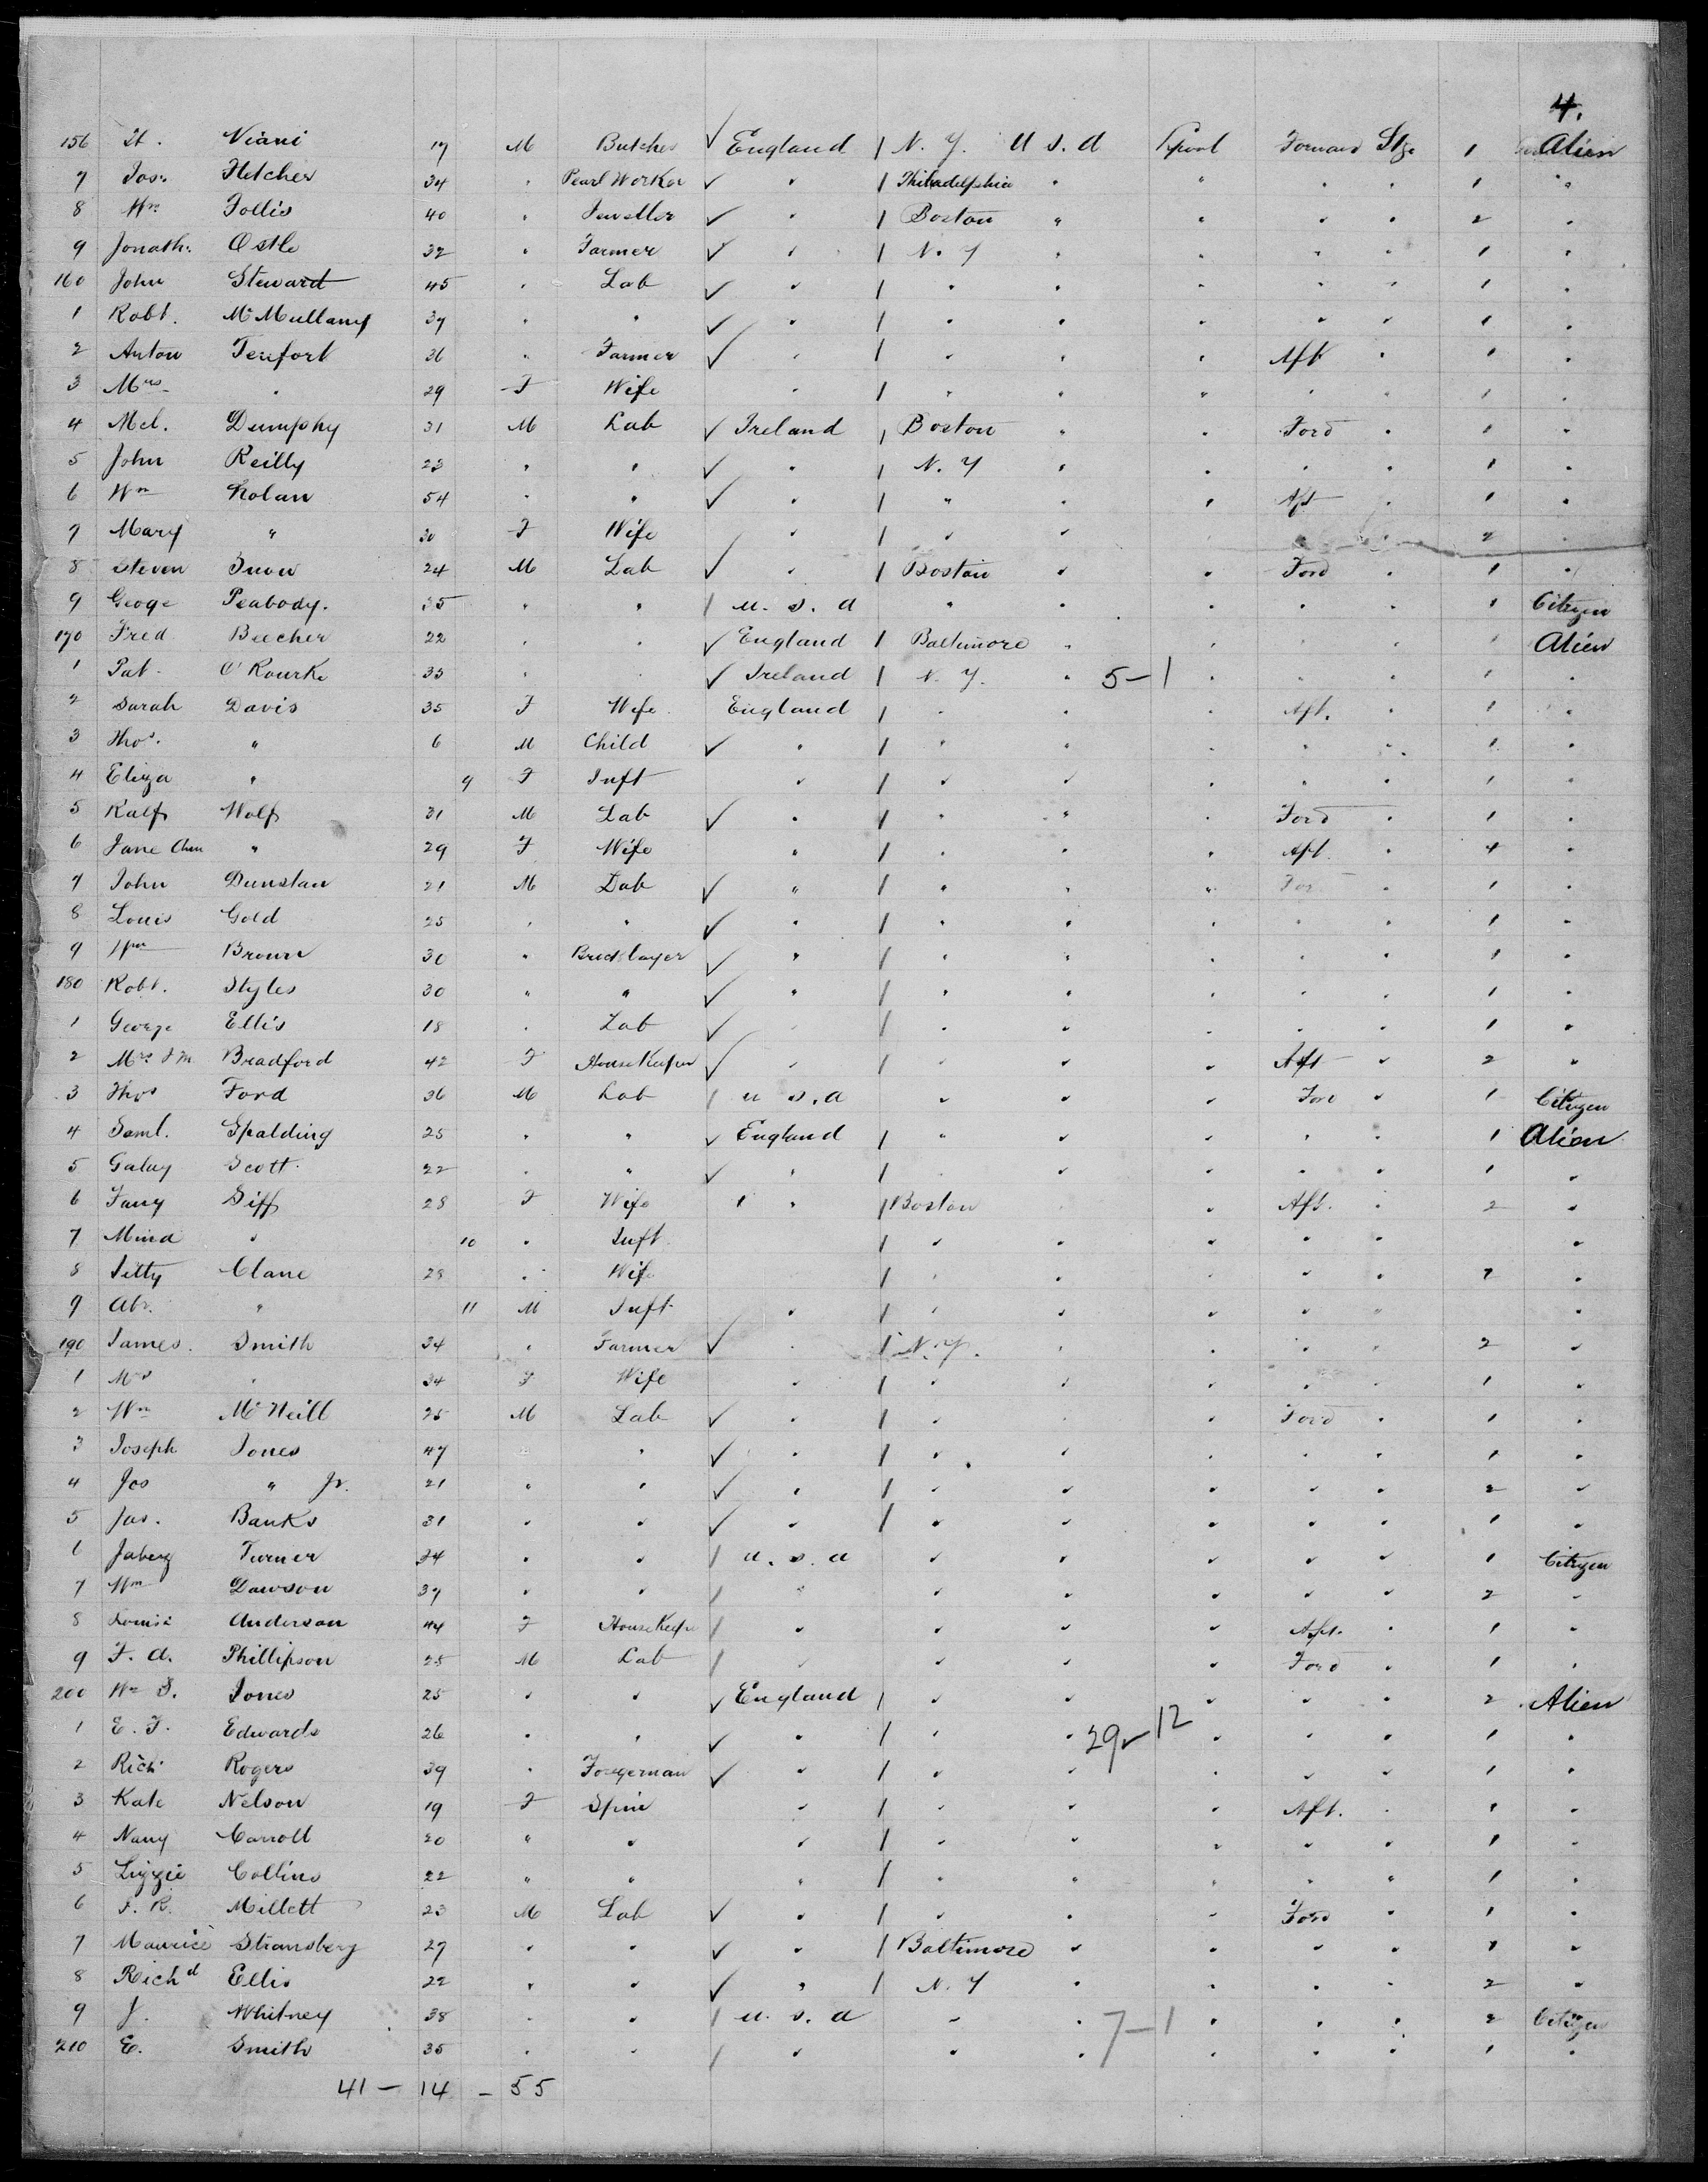 4.
156 St. Viani 17 M Butcher ✓ England / N. Y. U S. A Lpool Forward Stge 1 Alien
7 Jos. Fletcher 34 " Pearl Worker ✓ " / Philadelphia " " " " 1 "
8 Wm Follis 40 " Jeweller ✓ " / Boston " " " " 2 "
9 Jonath. Ostle 32 " Farmer ✓ " / N. Y " " " " 1 "
160 John Steward 45 " Lab ✓ " / " " " " " 1 "
1 Robt. McMullany 37 " " ✓ " / " " " " " 1 "
2 Anton Tenfort 36 " Farmer ✓ " / " " " Aft " 1 "
3 Mrs " 29 F Wife " / " " " " " 1 "
4 Mcl. Dumphy 31 M Lab ✓ Ireland / Boston " " Ford " 1 "
5 John Reilly 23 " " ✓ " / N. Y " " " " 1 "
6 Wm Nolan 54 " " ✓ " / " " " Aft " 1 "
7 Mary " 30 F Wife " / " " " " " 2 "
8 Steven 24 M Lab ✓ " / Boston " " Ford " 1 "
9 Geoge Peabody. 35 " " / U. S. A " " " " " 1 Citizen
170 Fred Beecher 22 " " ✓ England / Baltimore " " " " 1 Alien
1 Pat. O'Rourke 33 " " ✓ Ireland / N. Y. " 5-1 " " " 1 "
2 Sarah Davis 35 F Wife England / " " " Aft. " 1 "
3 Thos. " 6 M Child ✓ " / " " " " " 1 "
4 Eliza " 9 F Inft " / " " " " " 1 "
5 Ralf Wolf 31 M Lab ✓ " / " " " Ford " 1 "
6 Jane Ann " 29 F Wife " / " " " Aft. " 4 "
7 John Dunstan 21 M Lab ✓ " / " " " Ford " 1 "
8 Louis Gold 25 " " ✓ " / " " " " " 1 "
9 Wm Brown 30 " Bricklayer ✓ " / " " " " " 1 "
180 Robt. Styles 30 " " ✓ " / " " " " " 1 "
1 George Ellis 18 " Lab ✓ " / " " " " " 1 "
2 Mrs J M Bradford 42 F HouseKeeper ✓ " / " " " Aft " 2 "
3 Thos Ford 36 M Lab / U S. A " " " Ford " 1 Citizen
4 Saml. Spalding 25 " " ✓ England / " " " " " 1 Alien
5 Scott. 22 " " ✓ " / " " " " " 1 "
6 Fany Siff 28 F Wife " / Boston " " Aft. " 2 "
7 Mina " 10 " Inft / " " " " " "
8 Clane 28 " Wife / " " " " " "
9 Abr. " 11 M Inft " / " " " " " "
190 James. Smith 34 " Farmer ✓ " / N. Y. " " " " 2 "
1 Mrs " 34 F Wife " / " " " " " 1 "
2 Wm McNeill 25 M Lab ✓ " / " " " Ford " 1 "
3 Joseph Jones 47 " " ✓ " / " " " " " 1 "
4 Jos " Jr. 21 " " ✓ " / " " " " " 2 "
5 Jas. Banks 31 " " ✓ " / " " " " " 1 "
6 Jabez Turner 34 " " / U. S. A " " " " " 1 Citizen
7 Wm Dawson 37 " " / " " " " " " 2 "
8 Louisa Anderson 44 F HouseKeepe / " " " " Aft. " 1 "
9 F. A. Phillipson 25 M Lab / " " " " Ford " 1 "
200 Wm S. Jones 25 " " ✓ England / " " " " " 2 Alien
1 E. F. Edwards 26 " " ✓ " / " " 29-12 " " " 1 "
2 Rich Rogers 39 " Forgeman ✓ " / " " " " " 1 "
3 Kate Nelson 19 F Spin " / " " " Aft. " 1 "
4 Nany Carroll 20 " " " / " " " " " 1 "
5 Lizzie Collins 22 " " " / " " " " " 1 "
6 F. R. Millett 23 M Lab ✓ " / " " " Ford " 1 "
7 Maurice Stransberg 27 " " ✓ " / Baltimore " " " " 1 "
8 Richd Ellis 22 " " ✓ " / N. Y " " " " 2 "
9 J. Whitney 38 " " / U. S. A " " 7-1 " " " 2 Citizen
210 E. Smith 35 " " / " " " " " " 1 "
41 - 14 - 55